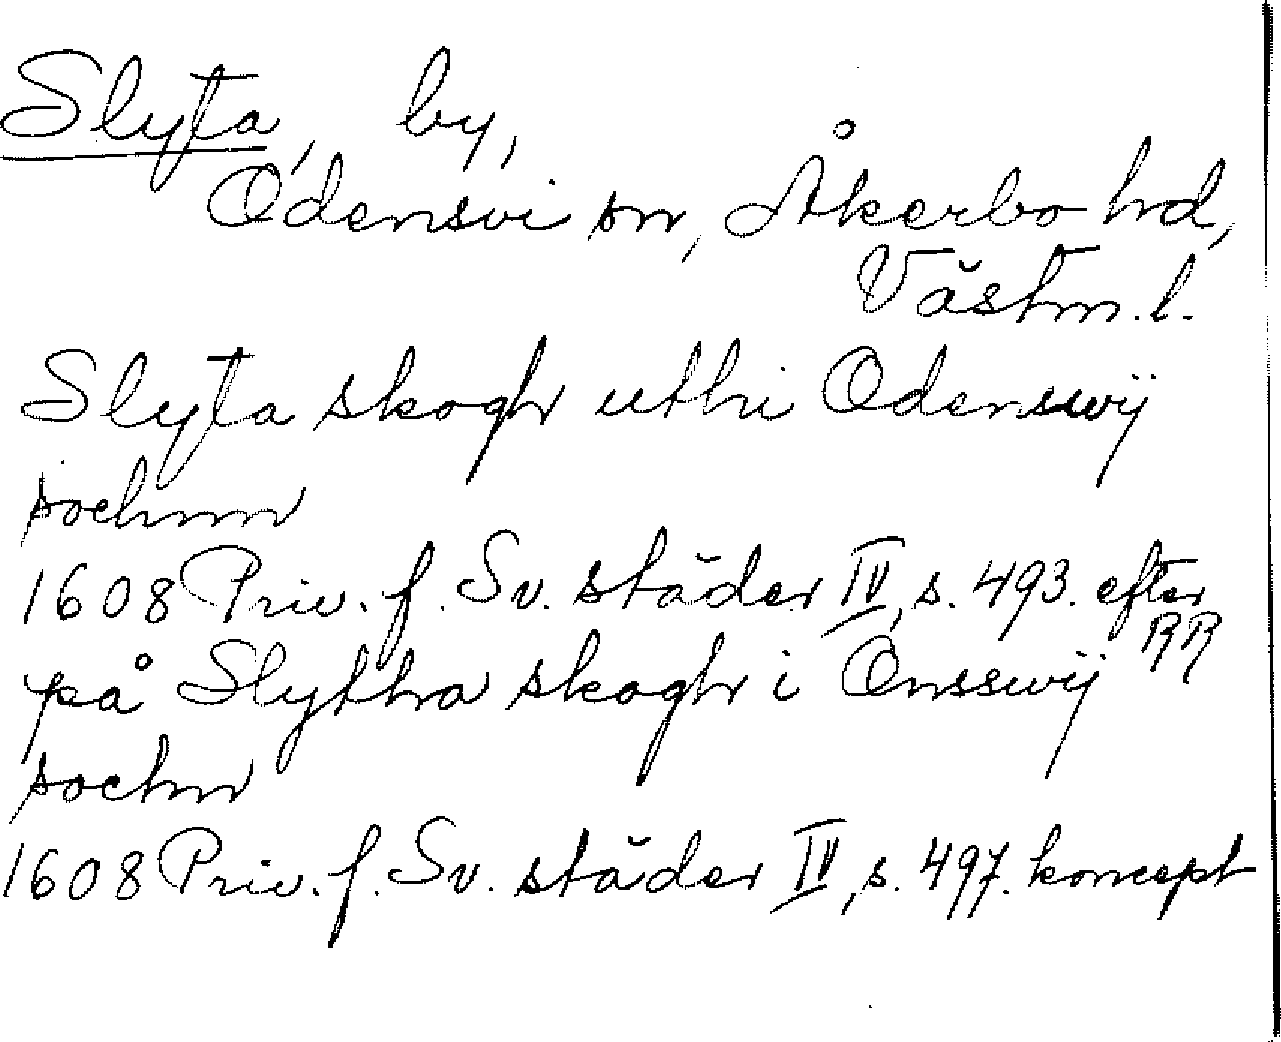 Slyta, by,
Odensvi sn, Åkerbo hd,
Västm. l.
Slyta skogh uthi Odenswij
sochnn
1608 Priv. f. Sv. städer IV, s. 493. efter
RR
på Slyttra skogh i Önsswij
sochn
1608 Priv. f. Sv. städer IV, s. 497. koncept